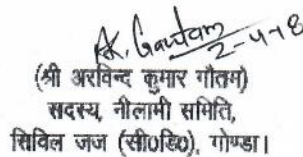 A.K. Gautam
2-4-18
(श्री अरविन्द कुमार गौतम)
सदस्य, नीलामी समिति,
सिविल जज (सी0डि0), गोण्डा।